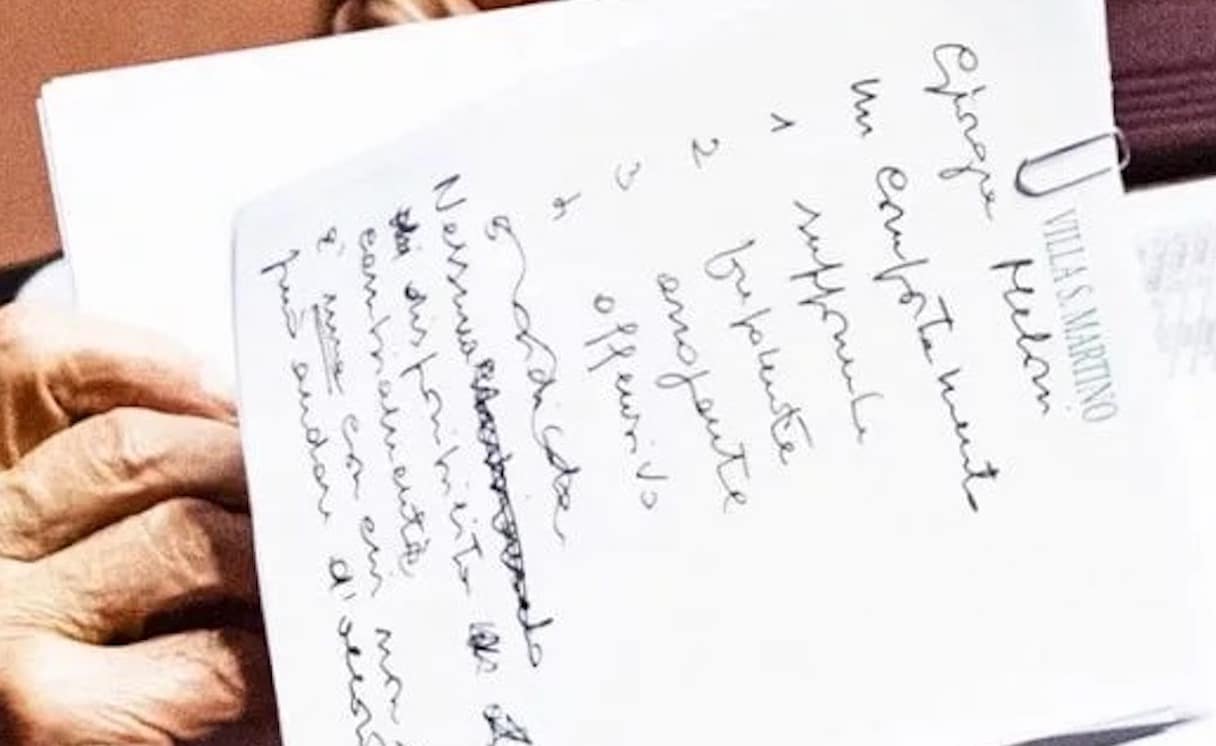 VILLA S. MARTINO
Giorgia Meloni
Un comportamento
1 supponente
2 prepotente
3 arrogante
4 offensivo
Nessuna
disponibilità ai
cambiamenti
È una con cui non
può andar d'accor